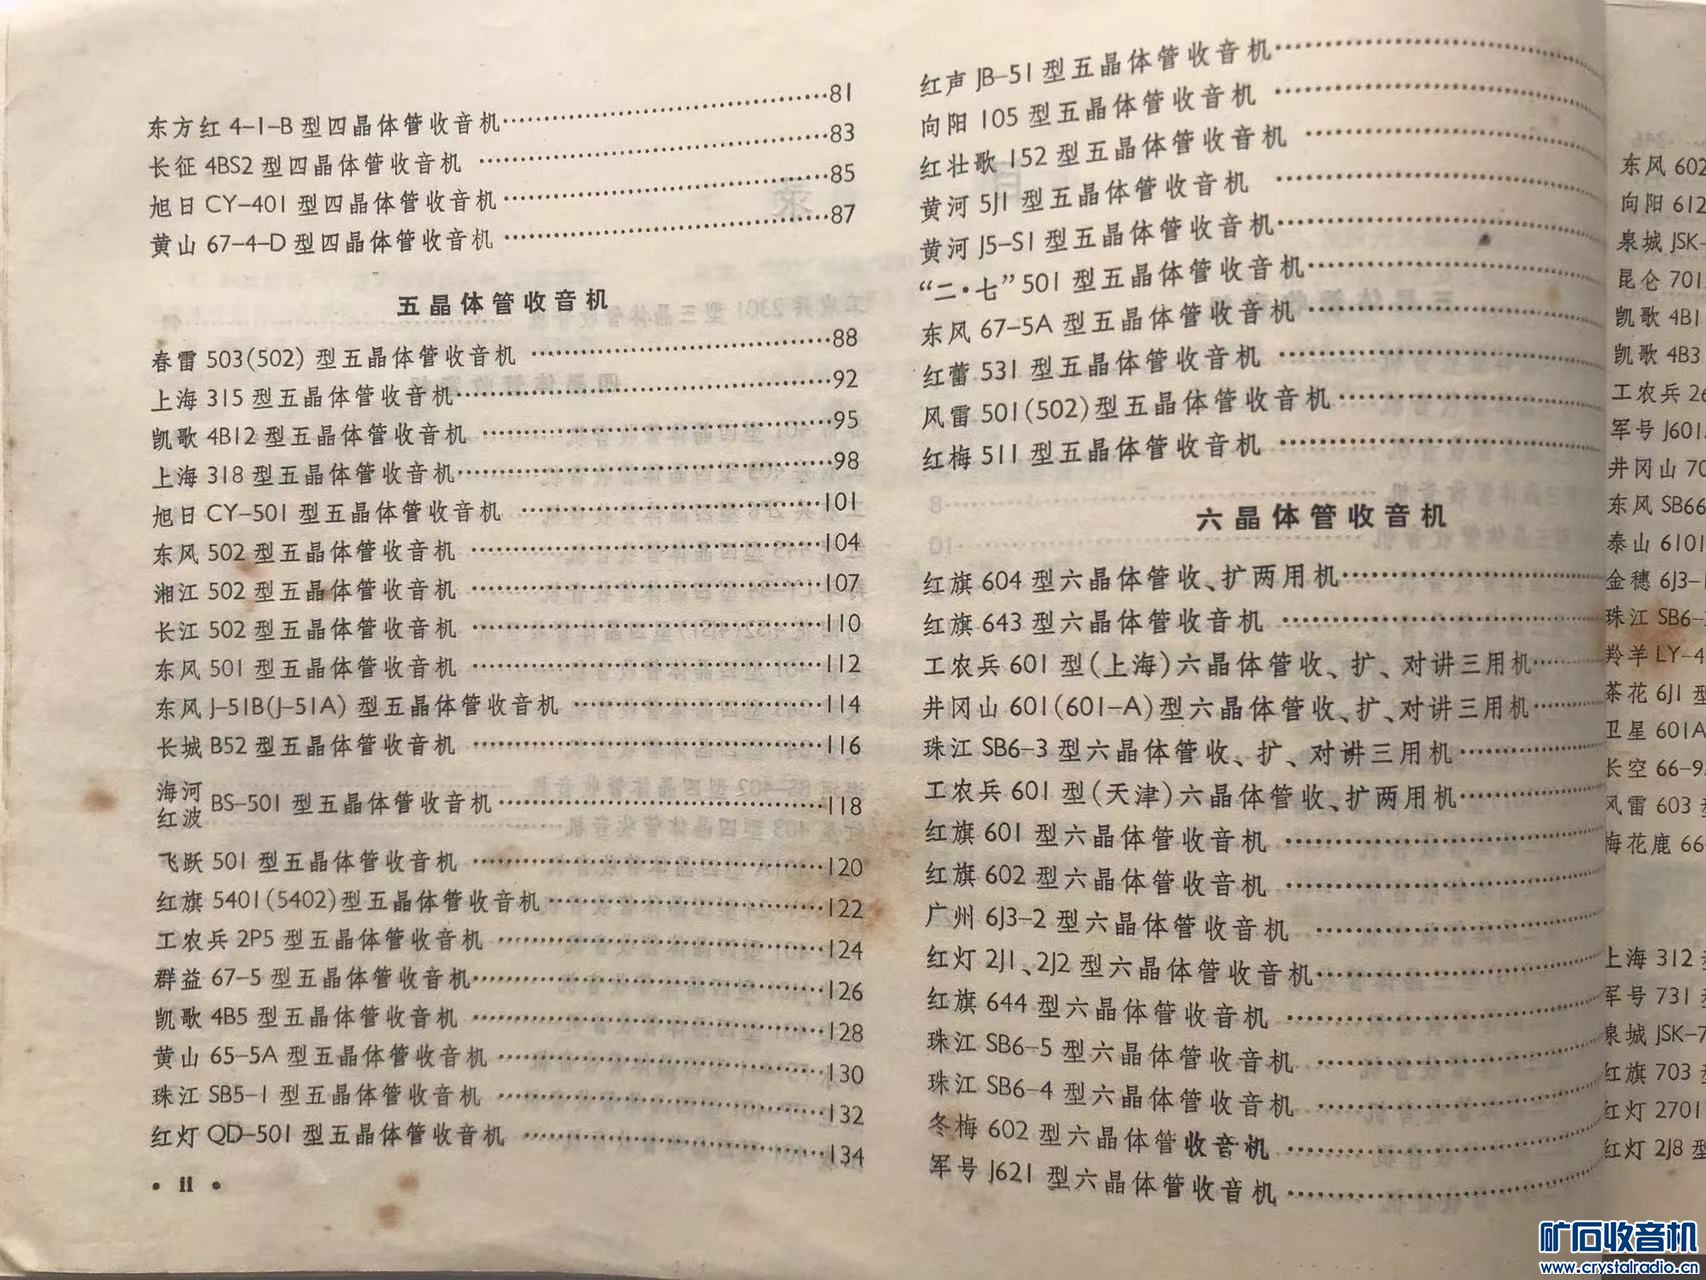 东方红 4-1-B 型四晶体管收音机……81
长征 4BS2 型四晶体管收音机……83
旭日 CY-401 型四晶体管收音机……85
黄山 67-4-D 型四晶体管收音机……87
五晶体管收音机
春雷 503(502) 型五晶体管收音机……88
上海 315 型五晶体管收音机……92
凯歌 4B12 型五晶体管收音机……95
上海 318 型五晶体管收音机……98
旭日 CY-501 型五晶体管收音机……101
东风 502 型五晶体管收音机……104
湘江 502 型五晶体管收音机……107
长江 502 型五晶体管收音机……110
东风 501 型五晶体管收音机……112
东风 J-51B(J-51A) 型五晶体管收音机……114
长城 B52 型五晶体管收音机……116
海河
红波 BS-501 型五晶体管收音机……118
飞跃 501 型五晶体管收音机……120
红旗 5401(5402)型五晶体管收音机……122
工农兵 2P5 型五晶体管收音机……124
群益 67-5 型五晶体管收音机……126
凯歌 4B5 型五晶体管收音机……128
黄山 65-5A 型五晶体管收音机……130
珠江 SB5-1 型五晶体管收音机……132
红灯 QD-501 型五晶体管收音机……134
• ii •
红声 JB-51 型五晶体管收音机……
向阳 105 型五晶体管收音机……
红壮歌 152 型五晶体管收音机……
黄河 5J1 型五晶体管收音机……
黄河 J5-S1 型五晶体管收音机……
“二·七”501 型五晶体管收音机……
东风 67-5A 型五晶体管收音机……
红蕾 531 型五晶体管收音机……
风雷 501(502)型五晶体管收音机……
红梅 511 型五晶体管收音机……
六晶体管收音机
红旗 604 型六晶体管收、扩两用机……
红旗 643 型六晶体管收音机……
工农兵 601 型(上海)六晶体管收、扩、对讲三用机……
井冈山 601(601-A)型六晶体管收、扩、对讲三用机……
珠江 SB6-3 型六晶体管收、扩、对讲三用机……
工农兵 601 型(天津)六晶体管收、扩两用机……
红旗 601 型六晶体管收音机……
红旗 602 型六晶体管收音机……
广州 6J3-2 型六晶体管收音机……
红灯 2J1、2J2 型六晶体管收音机……
红旗 644 型六晶体管收音机……
珠江 SB6-5 型六晶体管收音机……
珠江 SB6-4 型六晶体管收音机……
冬梅 602 型六晶体管收音机……
军号 J621 型六晶体管收音机……
东风 602
向阳 612
泉城 JSK-
昆仑 701
凯歌 4B1
凯歌 4B3
工农兵 26
军号 J601
井冈山 70
东风 SB66
泰山 6101
金穗 6J3-1
珠江 SB6-
羚羊 LY-4
茶花 6J1 型
卫星 601A
长空 66-9
风雷 603 型
梅花鹿 66
上海 312
军号 731
泉城 JSK-7
红旗 703
红灯 2701
红灯 2J8 型
矿石收音机
www.crystalradio.cn